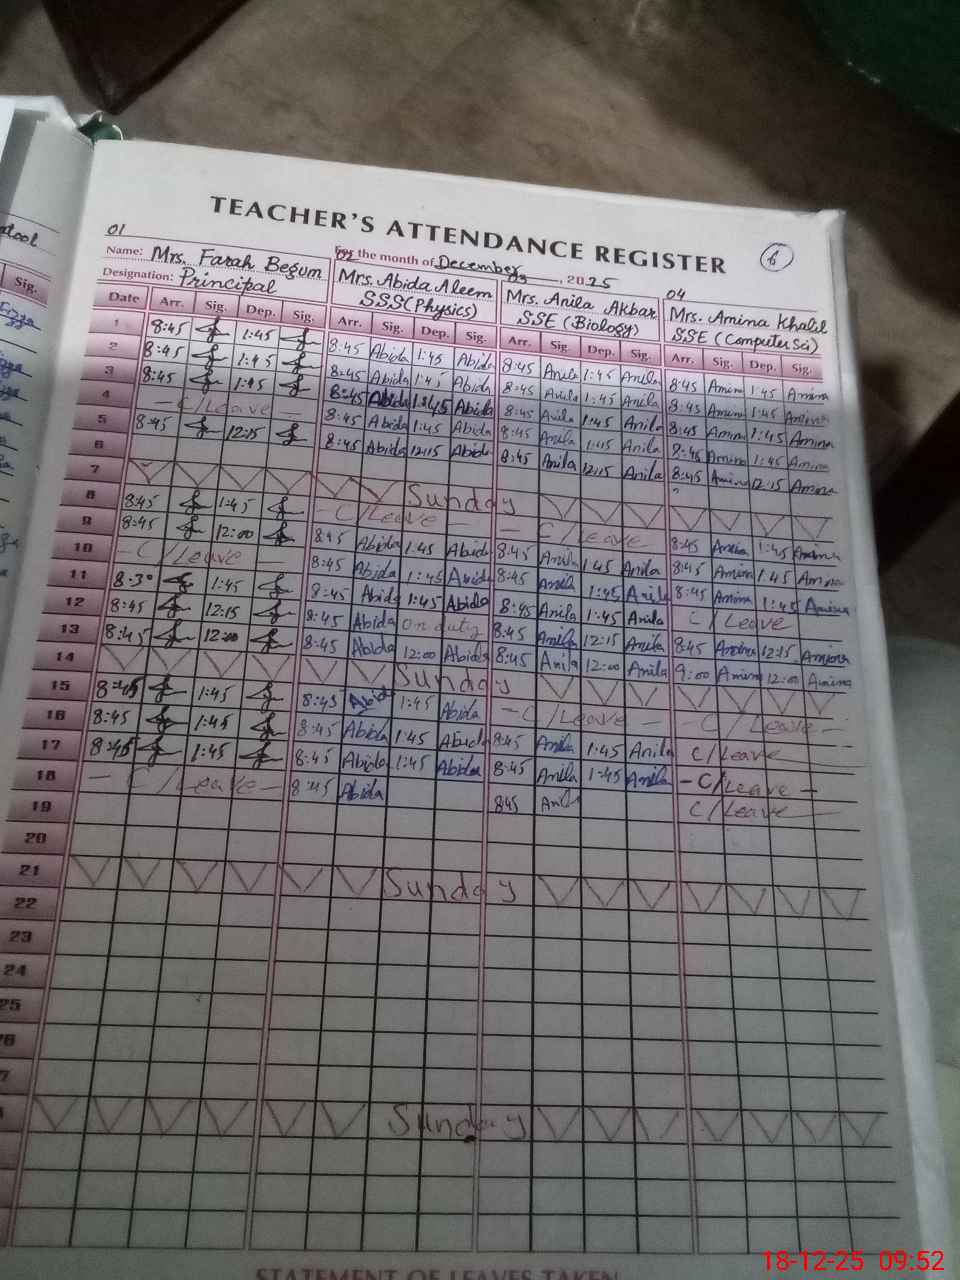 TEACHER'S ATTENDANCE REGISTER
01
For the month of December, 2025
6
Name: Mrs. Farah Begum
Designation: Principal
02
Mrs. Abida Aleem
SSS(Physics)
03
Mrs. Anila Akbar
SSE (Biology)
04
Mrs. Amina Khalil
SSE (Computer Sci)
Date Arr. Sig. Dep. Sig. Arr. Sig. Dep. Sig. Arr. Sig. Dep. Sig. Arr. Sig. Dep. Sig.
1 8:45 1:45 8:45 Abida 1:45 Abida 8:45 Anila 1:45 Anila 8:45 Amina 1:45 Amina
2 8:45 1:45 8:45 Abida 1:45 Abida 8:45 Anila 1:45 Anila 8:45 Amina 1:45 Amina
3 8:45 1:45 8:45 Abida 1:45 Abida 8:45 Anila 1:45 Anila 8:45 Amina 1:45 Amina
4 - C/Leave - 8:45 Abida 1:45 Abida 8:45 Anila 1:45 Anila 8:45 Amina 1:45 Amina
5 8:45 12:15 8:45 Abida 12:15 Abida 8:45 Anila 12:15 Anila 8:45 Amina 12:15 Amina
6
7 Sunday
8 8:45 1:45 - C/Leave - - C/Leave 8:45 Amina 1:45 Amina
9 8:45 12:00 8:45 Abida 1:45 Abida 8:45 Anila 1:45 Anila 8:45 Amina 1:45 Amina
10 - C/Leave - 8:45 Abida 1:45 Abida 8:45 Anila 1:45 Anila 8:45 Amina 1:45 Amina
11 8:30 1:45 8:45 Abida 1:45 Abida 8:45 Anila 1:45 Anila C/Leave
12 8:45 12:15 8:45 Abida on duty 8:45 Anila 12:15 Anila 8:45 Amina 12:15 Amina
13 8:45 12:00 8:45 Abida 12:00 Abida 8:45 Anila 12:00 Anila 9:00 Amina 12:00 Amina
14 Sunday
15 8:45 1:45 8:45 Abida 1:45 Abida - C/Leave - - C/Leave -
16 8:45 1:45 8:45 Abida 1:45 Abida 8:45 Anila 1:45 Anila C/Leave
17 8:45 1:45 8:45 Abida 1:45 Abida 8:45 Anila 1:45 Anila - C/Leave -
18 - C/Leave - 8:45 Abida 8:45 Anila C/Leave
19
20
21 Sunday
22
23
24
25
Sunday
STATEMENT OF LEAVES TAKEN
Sig.
18-12-25 09:52